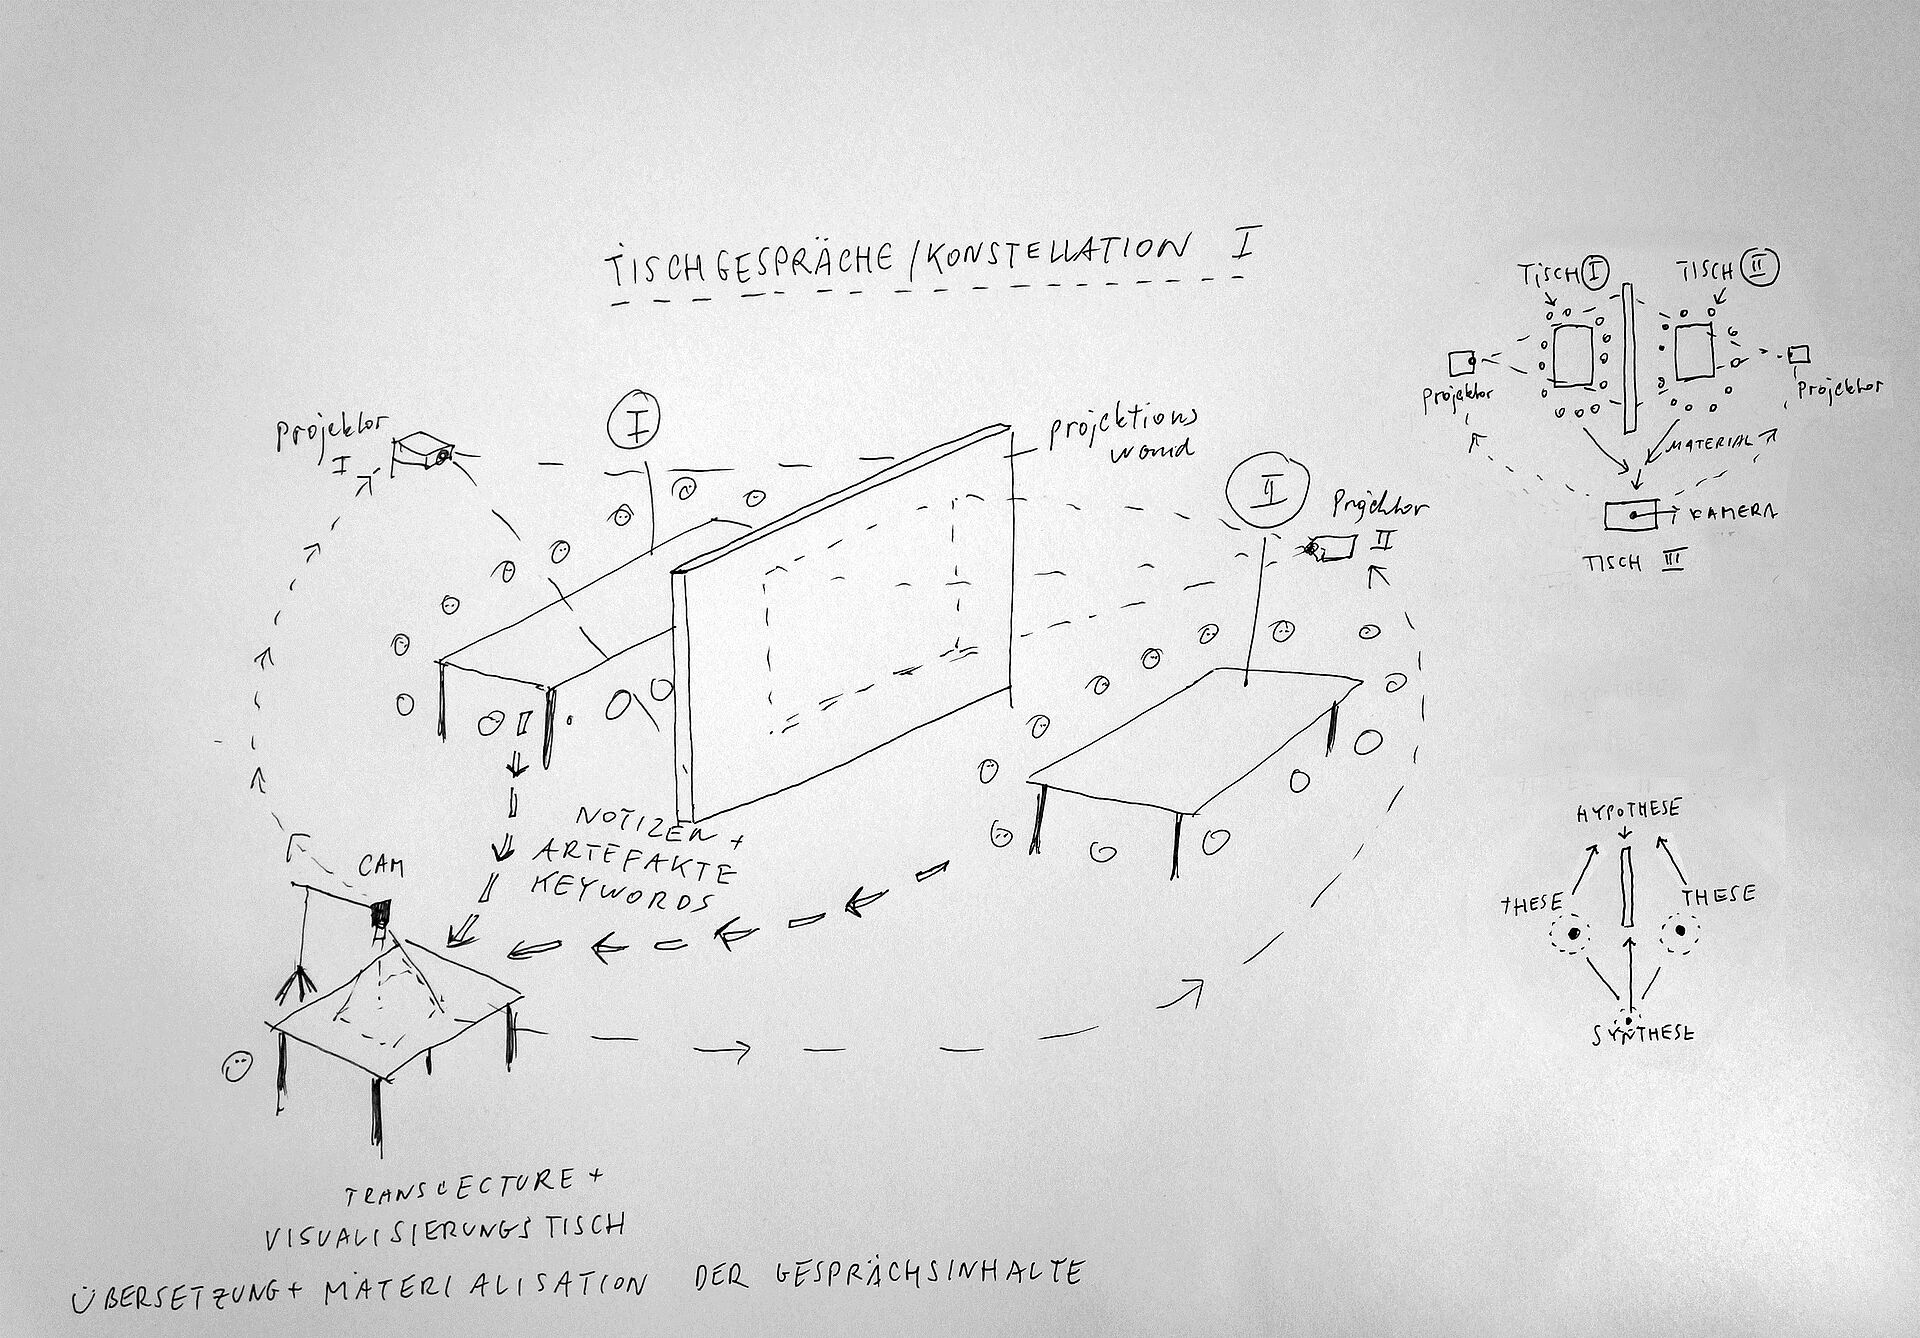 TISCHGESPRÄCHE / KONSTELLATION I
Projektor
I
I
projektions
wand
II
Projektor
II
CAM
NOTIZEN +
ARTEFAKTE
KEYWORDS
TRANSLECTURE +
VISUALISIERUNGSTISCH
ÜBERSETZUNG + MATERIALISATION DER GESPRÄCHSINHALTE
TISCH I
TISCH II
Projektor
Projektor
MATERIAL
KAMERA
TISCH III
HYPOTHESE
THESE
THESE
SYNTHESE